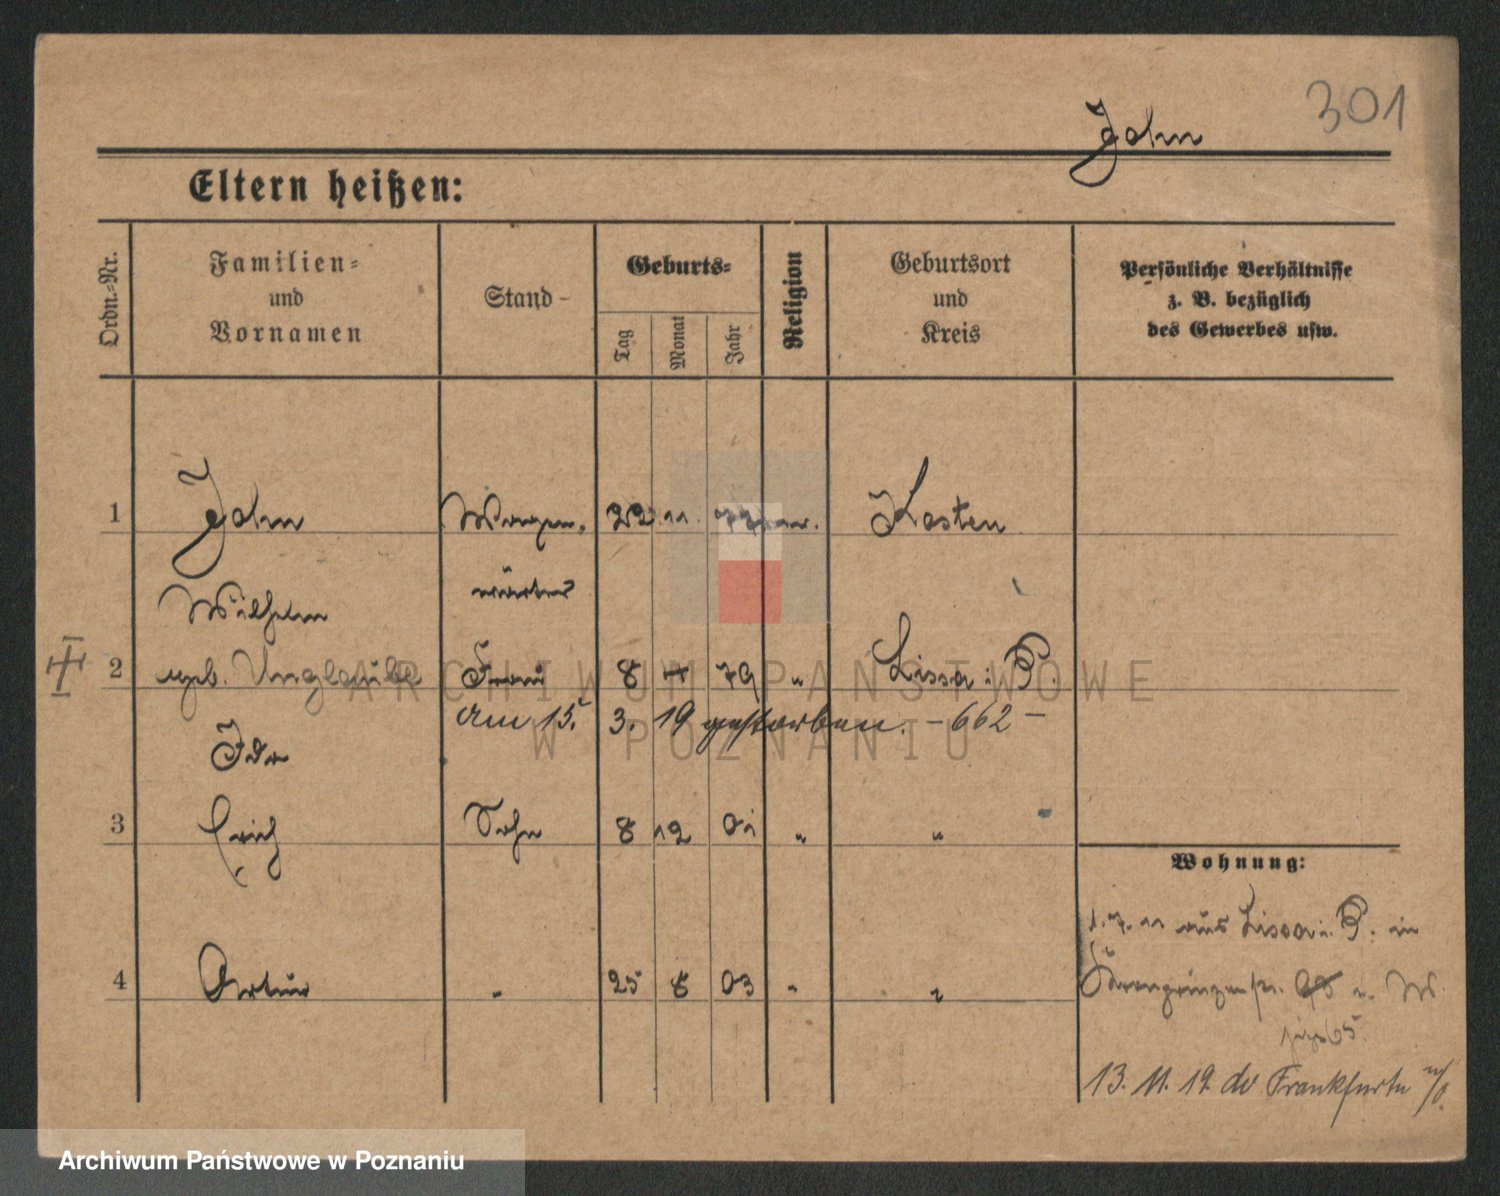 301
John
Eltern heißen:
Ordn.-Nr.
Familien-
und
Vornamen
Stand
Geburts-
Tag
Monat
Jahr
Religion
Geburtsort
und
Kreis
Persönliche Verhältnisse
z. B. bezüglich
des Gewerbes usw.
1 John Wagen- 22 11 77 Kosten
Wilhelm wärter
2 geb. Unglaube Frau 8 79 " Lissa i. P.
am 15. 3. 19 gestorben. - 662 -
Ida
3 Erich Sohn 8 12 01 " "
4 Artur " 25 8 03 " "
Wohnung:
1. 7. 11 aus Lissa i. P. in
Kronprinzenstr. W.
jetzt 65
13. 11. 19. do Frankfurt a/O.
ARCHIWUM PAŃSTWOWE
W POZNANIU
Archiwum Państwowe w Poznaniu